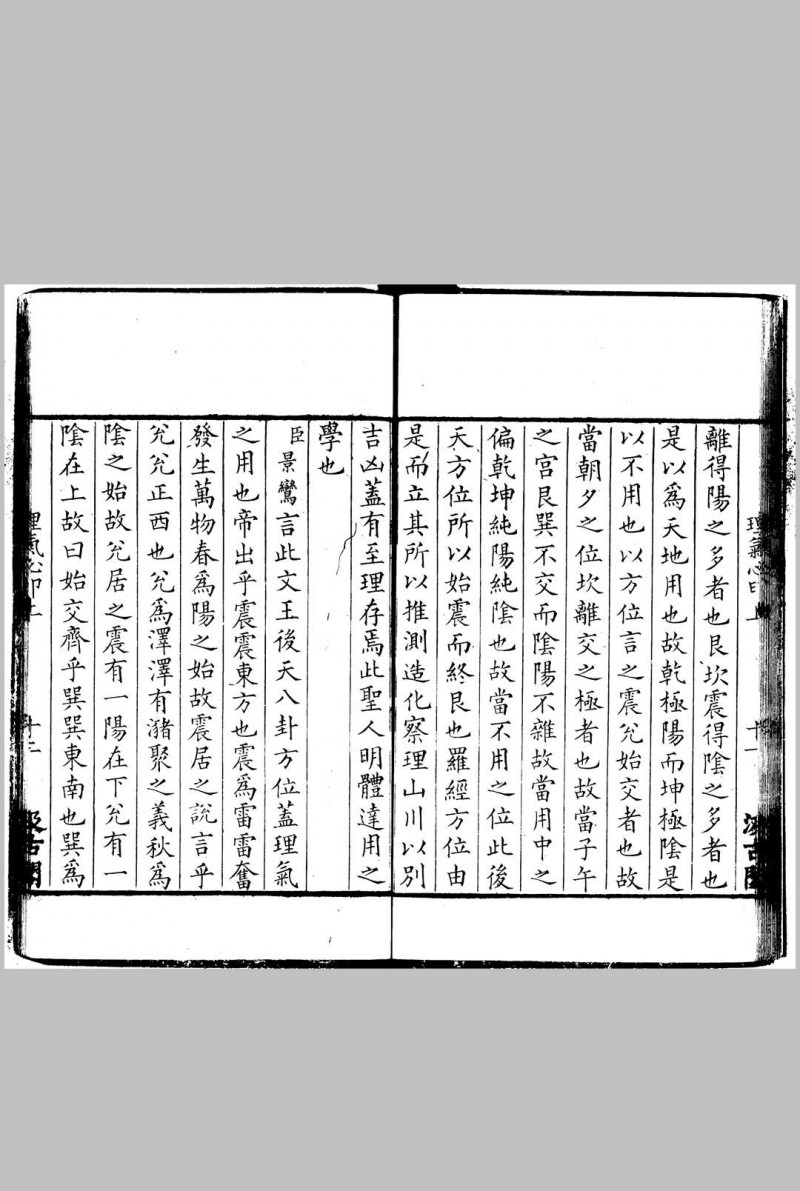 離得陽之多者也艮坎震得陰之多者也
是以爲天地用也故乾極陽而坤極陰是
以不用也以方位言之震兊始交者也故
當朝夕之位坎離交之極者也故當子午
之宮艮巽不交而陰陽不雜故當用中之
偏乾坤純陽純陰也故當不用之位此後
天方位所以始震而終艮也羅經方位由
是而立其所以推測造化察理山川以別
吉凶蓋有至理存焉此聖人明體達用之
學也
臣景鸞言此文王後天八卦方位蓋理氣
之用也帝出乎震震東方也震爲雷雷奮
發生萬物春爲陽之始故震居之說言乎
兊兊正西也兊爲澤澤有瀦聚之義秋爲
陰之始故兊居之震有一陽在下兊有一
陰在上故曰始交齊乎巽巽東南也巽爲
理氣心印上
汲古閣